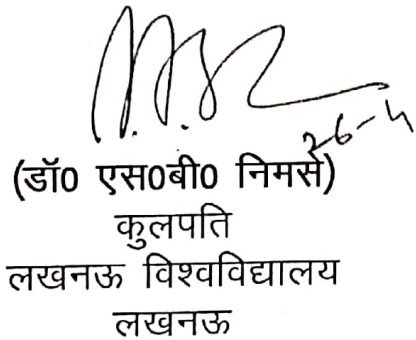 26-4
(डॉ0 एस0बी0 निमसे)
कुलपति
लखनऊ विश्वविद्यालय
लखनऊ